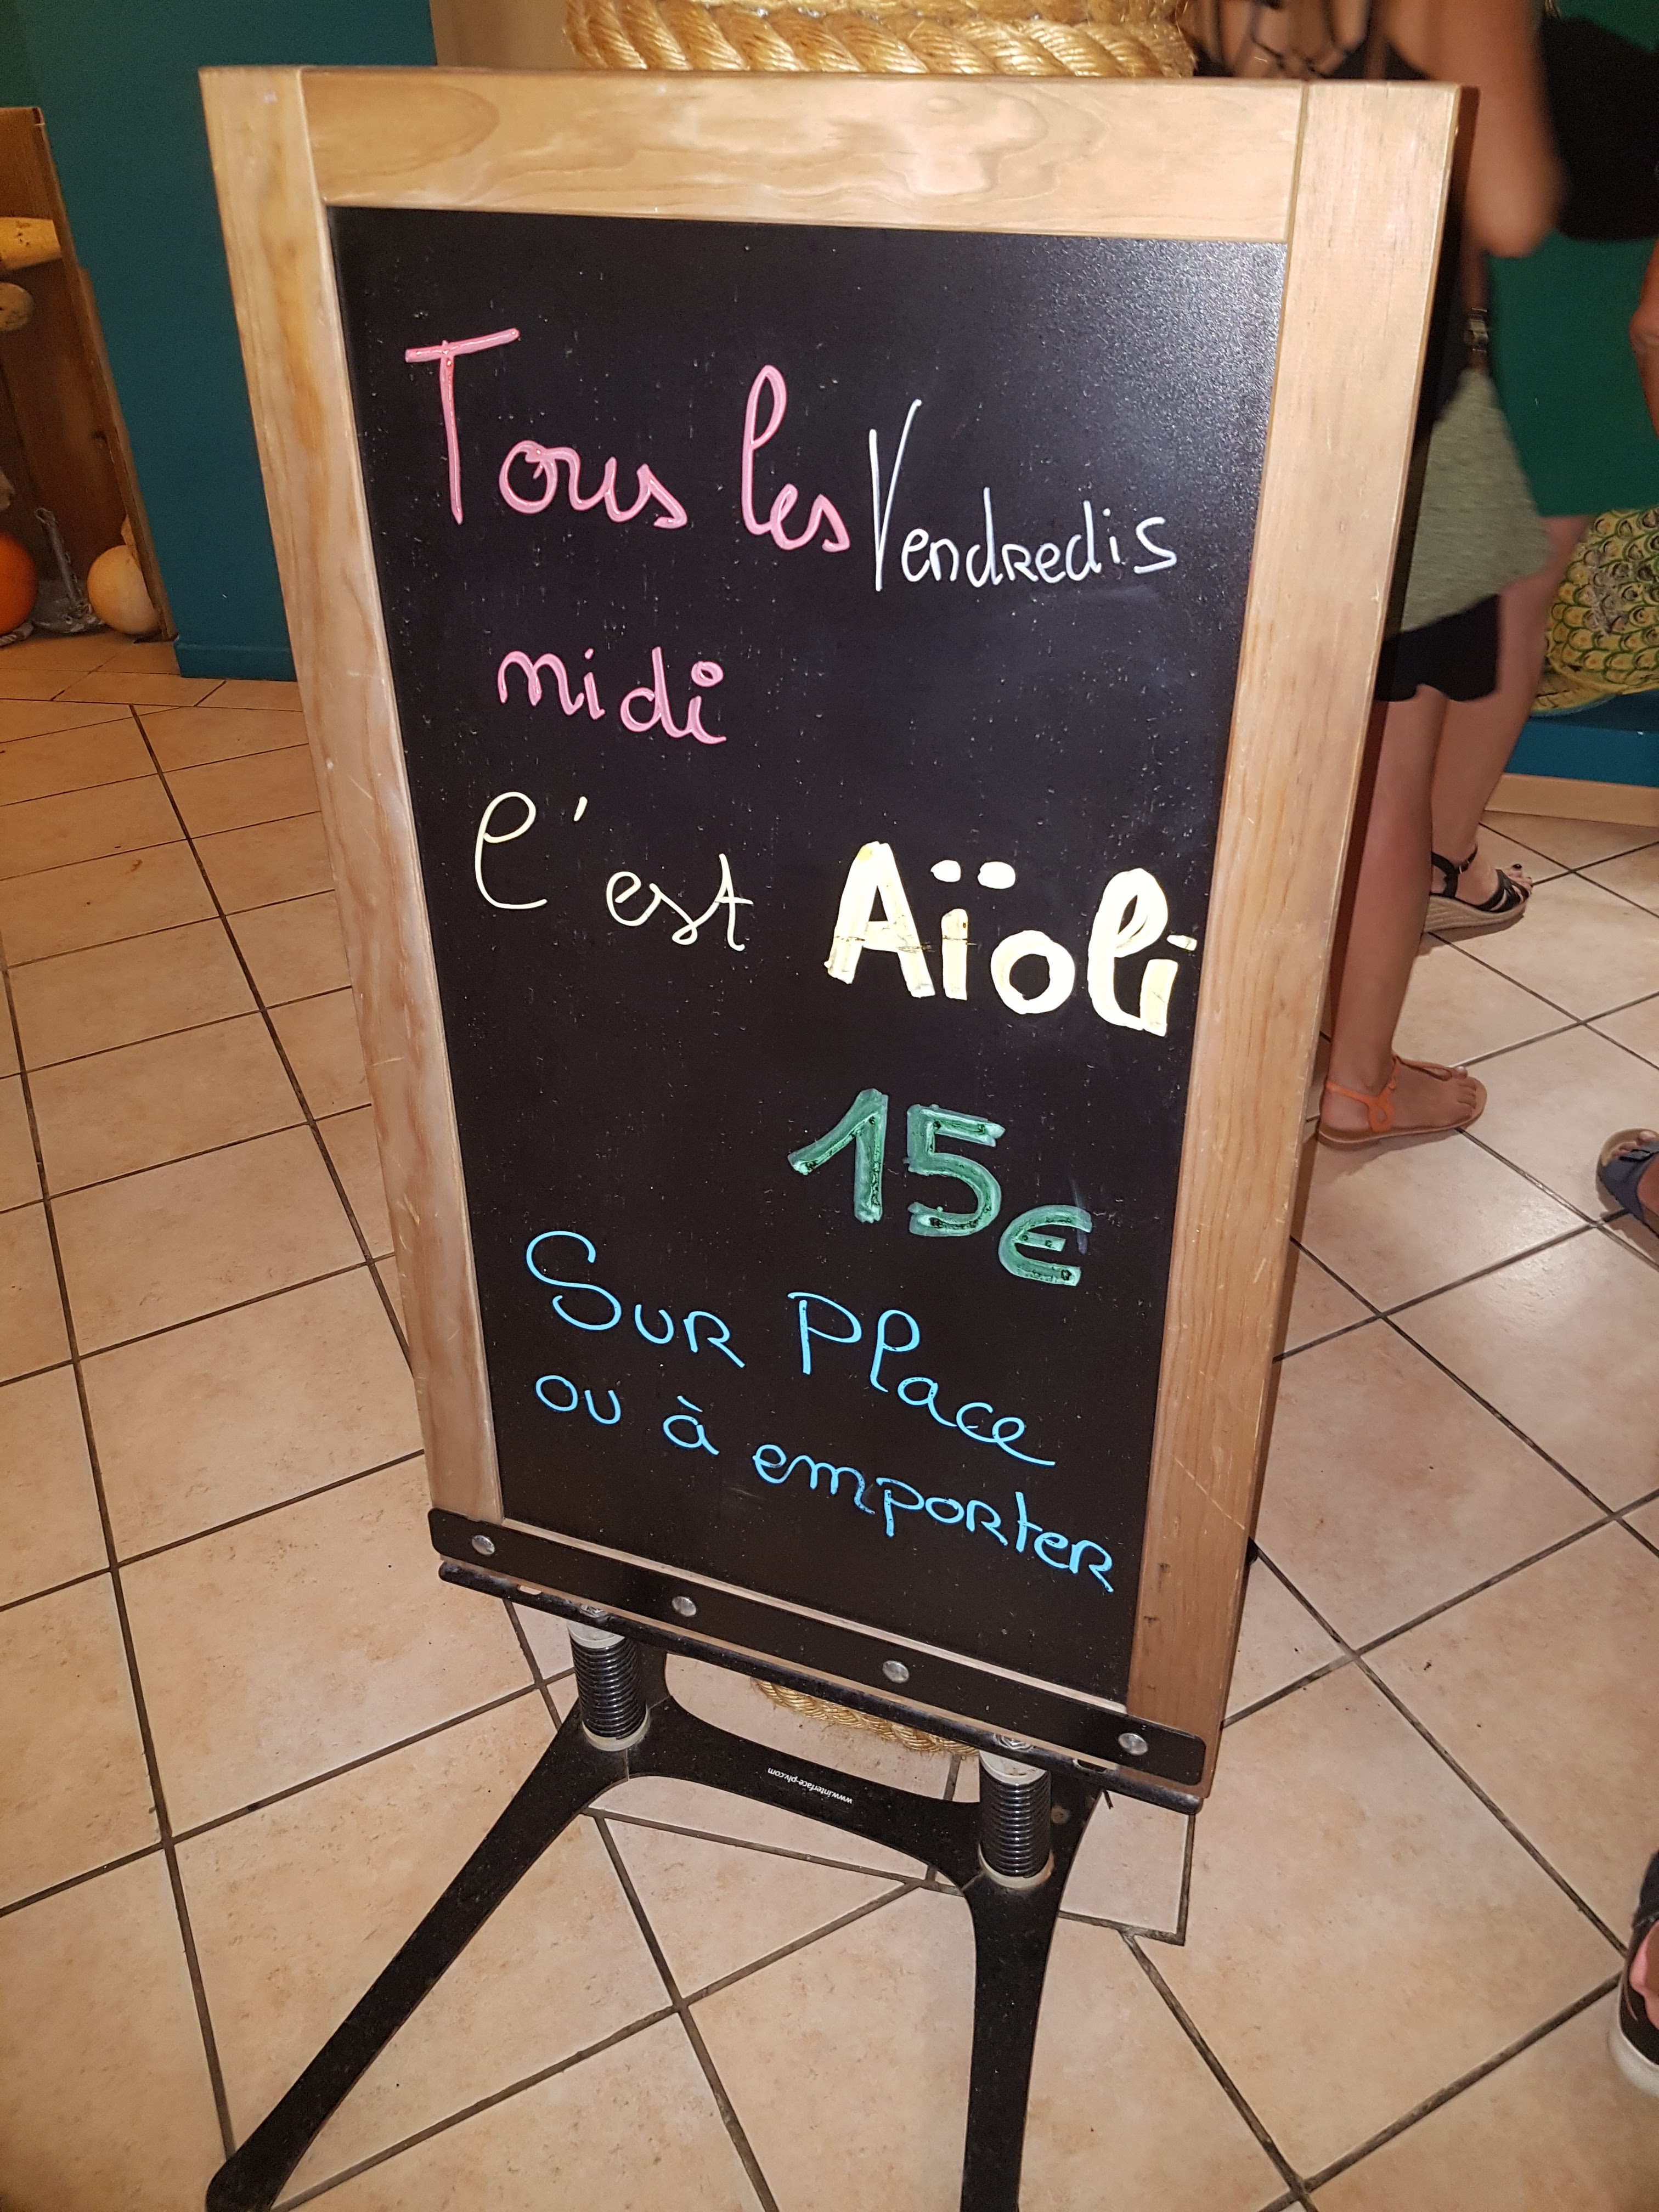 Tous les Vendredis
midi
C'est Aïoli
15€
Sur Place
ou à emporter
www.interface-plv.com